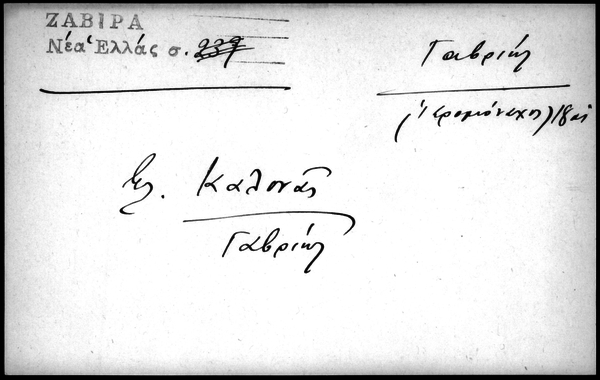 ΖΑΒΙΡΑ
Νέα Ἑλλάς σ. 239
Γαβριήλ
(ἱερομόναχος) 18 αἰ
βλ. Καλονᾶς
Γαβριήλ